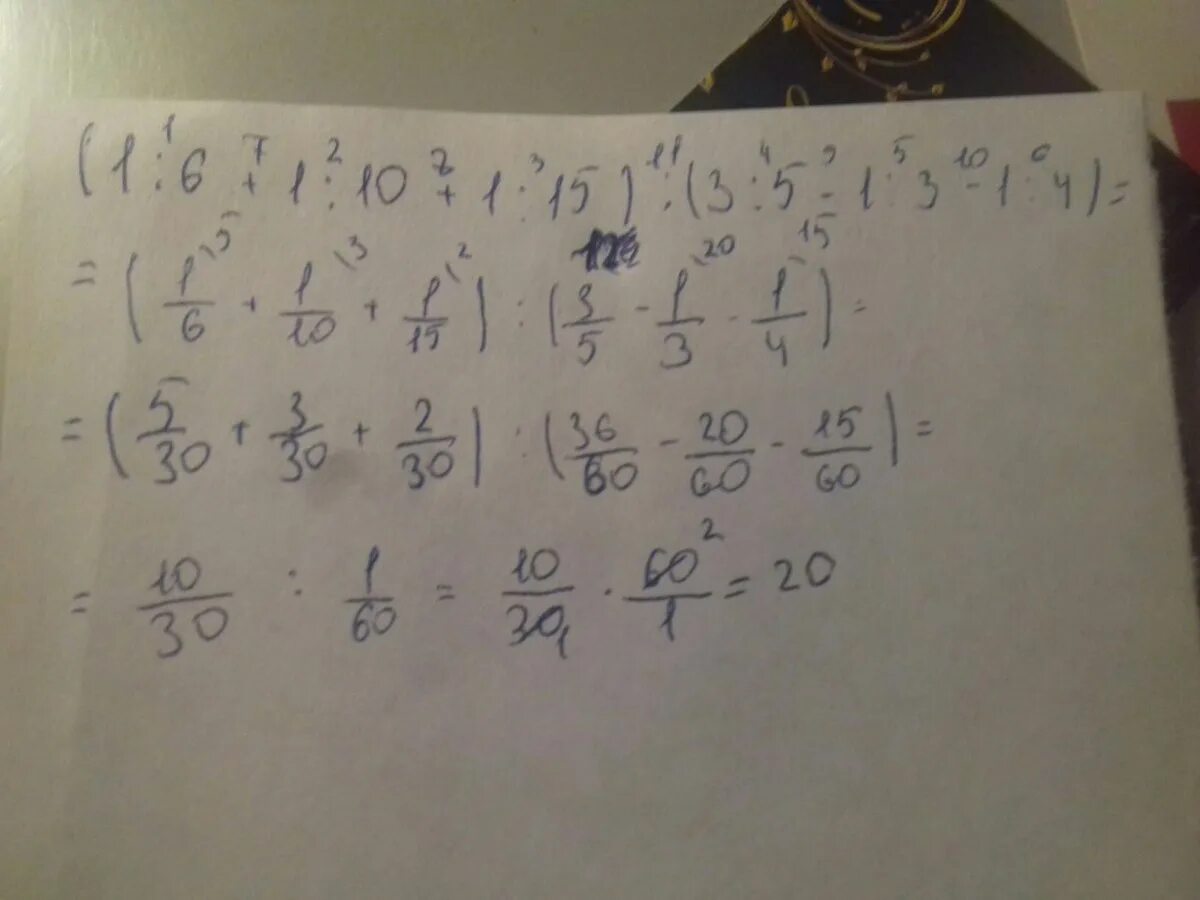 (1 :¹ 6 +⁷ 1 :² 10 +⁸ 1 :³ 15) :¹¹ (3 :⁴ 5 -⁹ 1 :⁵ 3 -¹⁰ 1 :⁶ 4) =
= (1/6 \5 + 1/10 \3 + 1/15 \2) : (3/5 - 1/3 \20 - 1/4 \15) =
= (5/30 + 3/30 + 2/30) : (36/60 - 20/60 - 15/60) =
= 10/30 : 1/60 = 10/30₁ · 60²/1 = 20